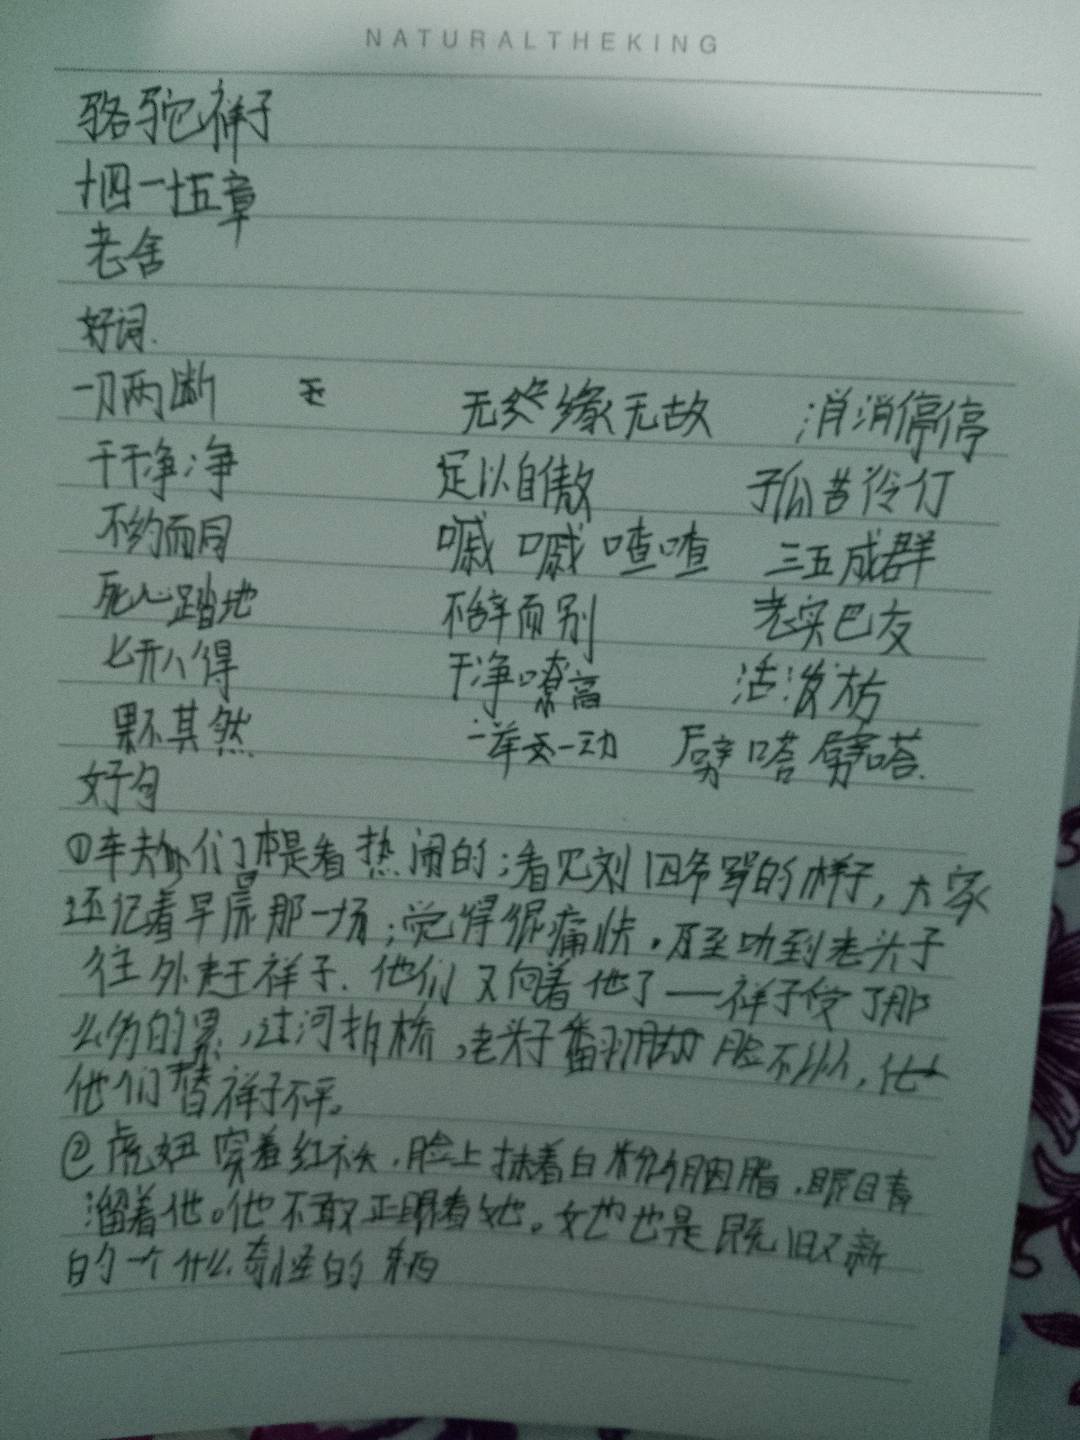 NATURALTHEKING
骆驼祥子
十四一十五章
老舍
好词.
一刀两断 无 无缘无故 消消停停
干干净净 足以自傲 孤苦伶仃
不约而同 嘁嘁喳喳 三五成群
死心踏地 不辞而别 老实巴友
七开八得 干净嘹高 活泼
果不其然 一举一动 劈嗒劈嗒.
好句
①车夫们本是看热闹的;看见刘四爷骂的样子,大家
还记着早晨那一场;觉得很痛快.及至 到老头子
往外赶祥子.他们又向着他了——祥子受了那
么多的累,过河拆桥,老头子翻脸不认人,他
他们替祥子不平。
②虎妞穿着红袄.脸上抹着白粉与胭脂.眼目着
溜着他。他不敢正眼看她。她也是既旧又新
的一个什么奇怪的东西